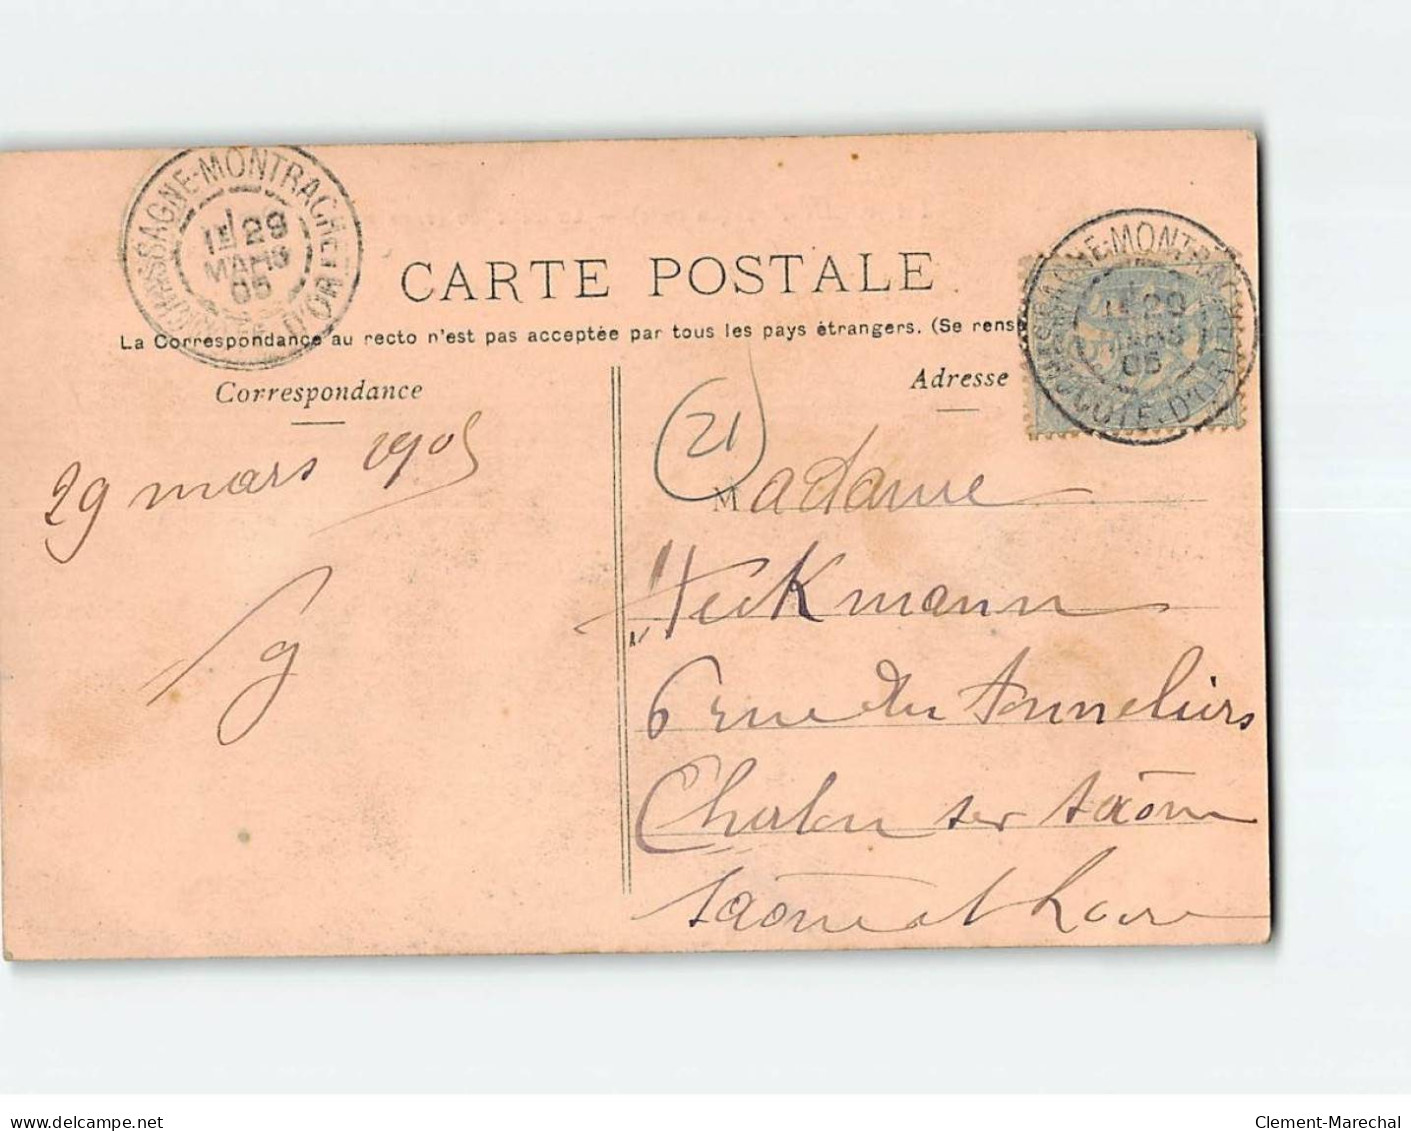 CHASSAGNE-MONTRACHET
1E 29
MARS
05
CÔTE-D'OR
CARTE POSTALE
La Correspondance au recto n'est pas acceptée par tous les pays étrangers. (Se rens
Correspondance
Adresse
CHASSAGNE-MONTRACHET
1E 29
MARS
05
CÔTE-D'OR
29 mars 1905
21
Madame
Heckmann
6 rue du Tonneliers
Chalon sur Saône
Saône et Loire
delcampe.net
Clement-Marechal